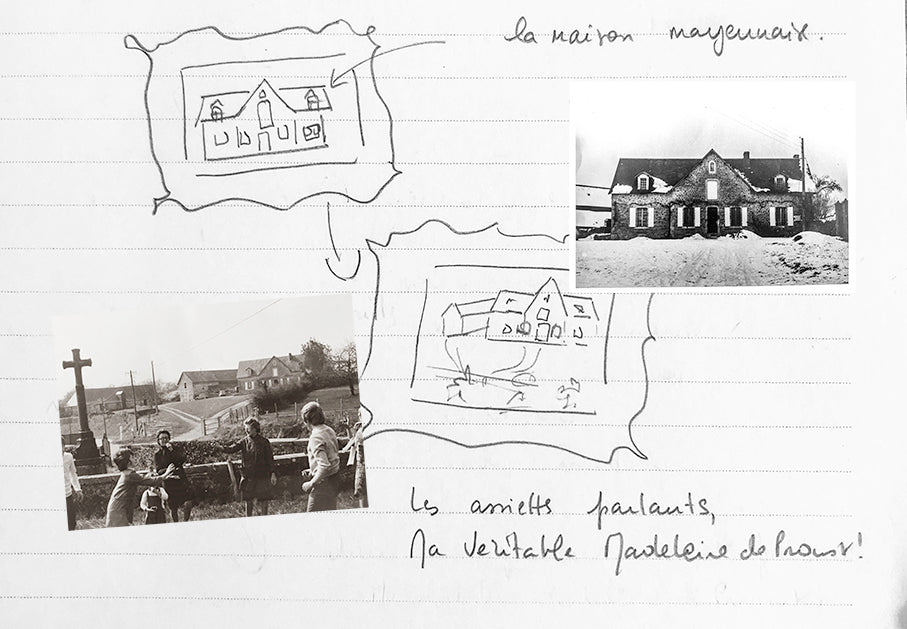 la maison mayennaise.
Les assiettes parlants,
Ma veritable Madeleine de Proust!